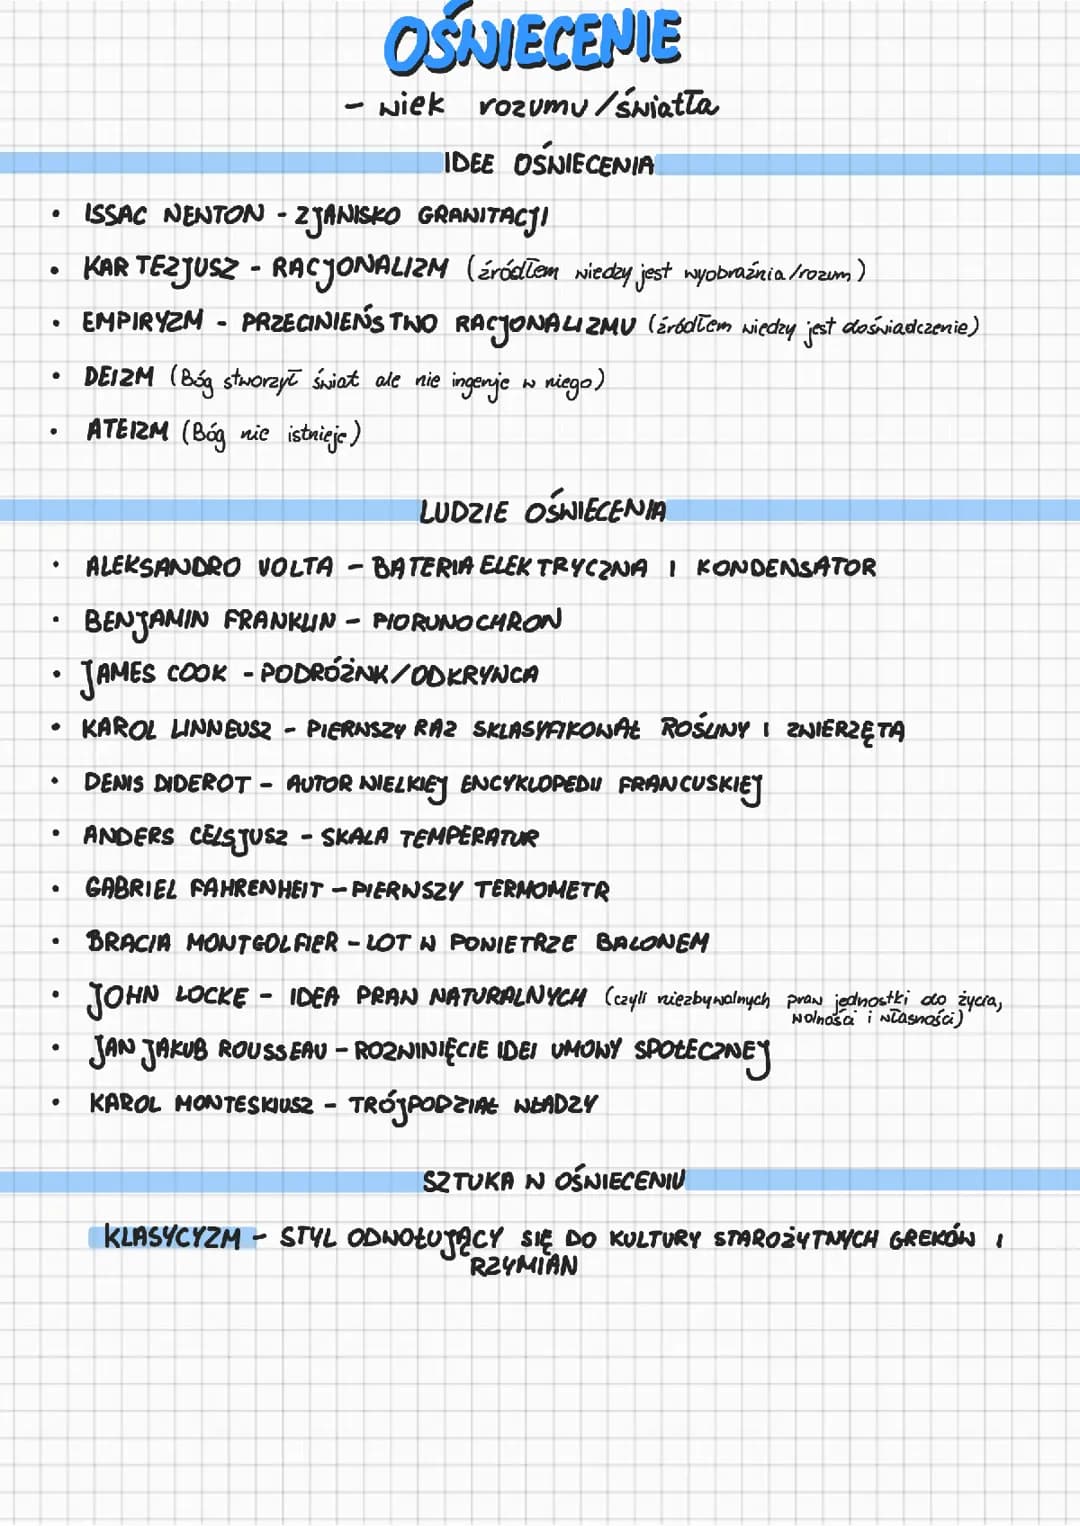 OŚWIECENIE
- wiek rozumu/światła
IDEE OŚWIECENIA
• ISSAC NEWTON - ZJAWISKO GRAWITACJI
• KARTEZJUSZ - RACJONALIZM (źródłem wiedzy jest wyobraźnia/rozum)
• EMPIRYZM - PRZECIWIEŃSTWO RACJONALIZMU (źródłem wiedzy jest doświadczenie)
• DEIZM (Bóg stworzył świat ale nie ingeruje w niego)
• ATEIZM (Bóg nie istnieje)
LUDZIE OŚWIECENIA
• ALEKSANDRO VOLTA - BATERIA ELEKTRYCZNA I KONDENSATOR
• BENJAMIN FRANKLIN - PIORUNOCHRON
• JAMES COOK - PODRÓŻNK/ODKRYWCA
• KAROL LINNEUSZ - PIERWSZY RAZ SKLASYFIKOWAŁ ROŚLINY I ZWIERZĘTA
• DENIS DIDEROT - AUTOR WIELKIEJ ENCYKLOPEDII FRANCUSKIEJ
• ANDERS CELSJUSZ - SKALA TEMPERATUR
• GABRIEL FAHRENHEIT - PIERWSZY TERMOMETR
• BRACIA MONTGOLFIER - LOT W POWIETRZE BALONEM
• JOHN LOCKE - IDEA PRAW NATURALNYCH (czyli niezbywalnych praw jednostki do życia,
wolności i własności)
• JAN JAKUB ROUSSEAU - ROZWINIĘCIE IDEI UMOWY SPOŁECZNEJ
• KAROL MONTESKIUSZ - TRÓJPODZIAŁ WŁADZY
SZTUKA W OŚWIECENIU
KLASYCYZM - STYL ODWOŁUJĄCY SIĘ DO KULTURY STAROŻYTNYCH GREKÓW I
RZYMIAN